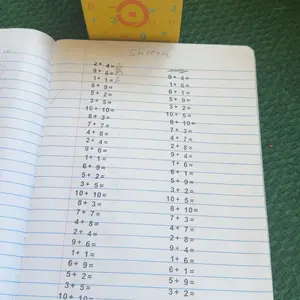 2+ 4=
9+ 6=
1+ 1=
6+ 9=
5+ 2=
3+ 5=
10+ 10=
8+ 3=
7+ 7=
4+ 8=
2+ 4=
9+ 6=
1+ 1=
6+ 9=
5+ 2=
3+ 5=
10+ 10=
8+ 3=
7+ 7=
4+ 8=
2+ 4=
9+ 6=
1+ 1=
6+ 9=
5+ 2=
3+ 5=
10+ 10=
9+ 4=
1+ 6=
6+ 1=
5+ 9=
3+ 2=
10+ 5=
8+ 10=
7+ 3=
4+ 7=
2+ 8=
9+ 4=
1+ 6=
6+ 1=
5+ 9=
3+ 2=
10+ 5=
8+ 10=
7+ 3=
4+ 7=
2+ 8=
9+ 4=
1+ 6=
6+ 1=
5+ 9=
3+ 2=